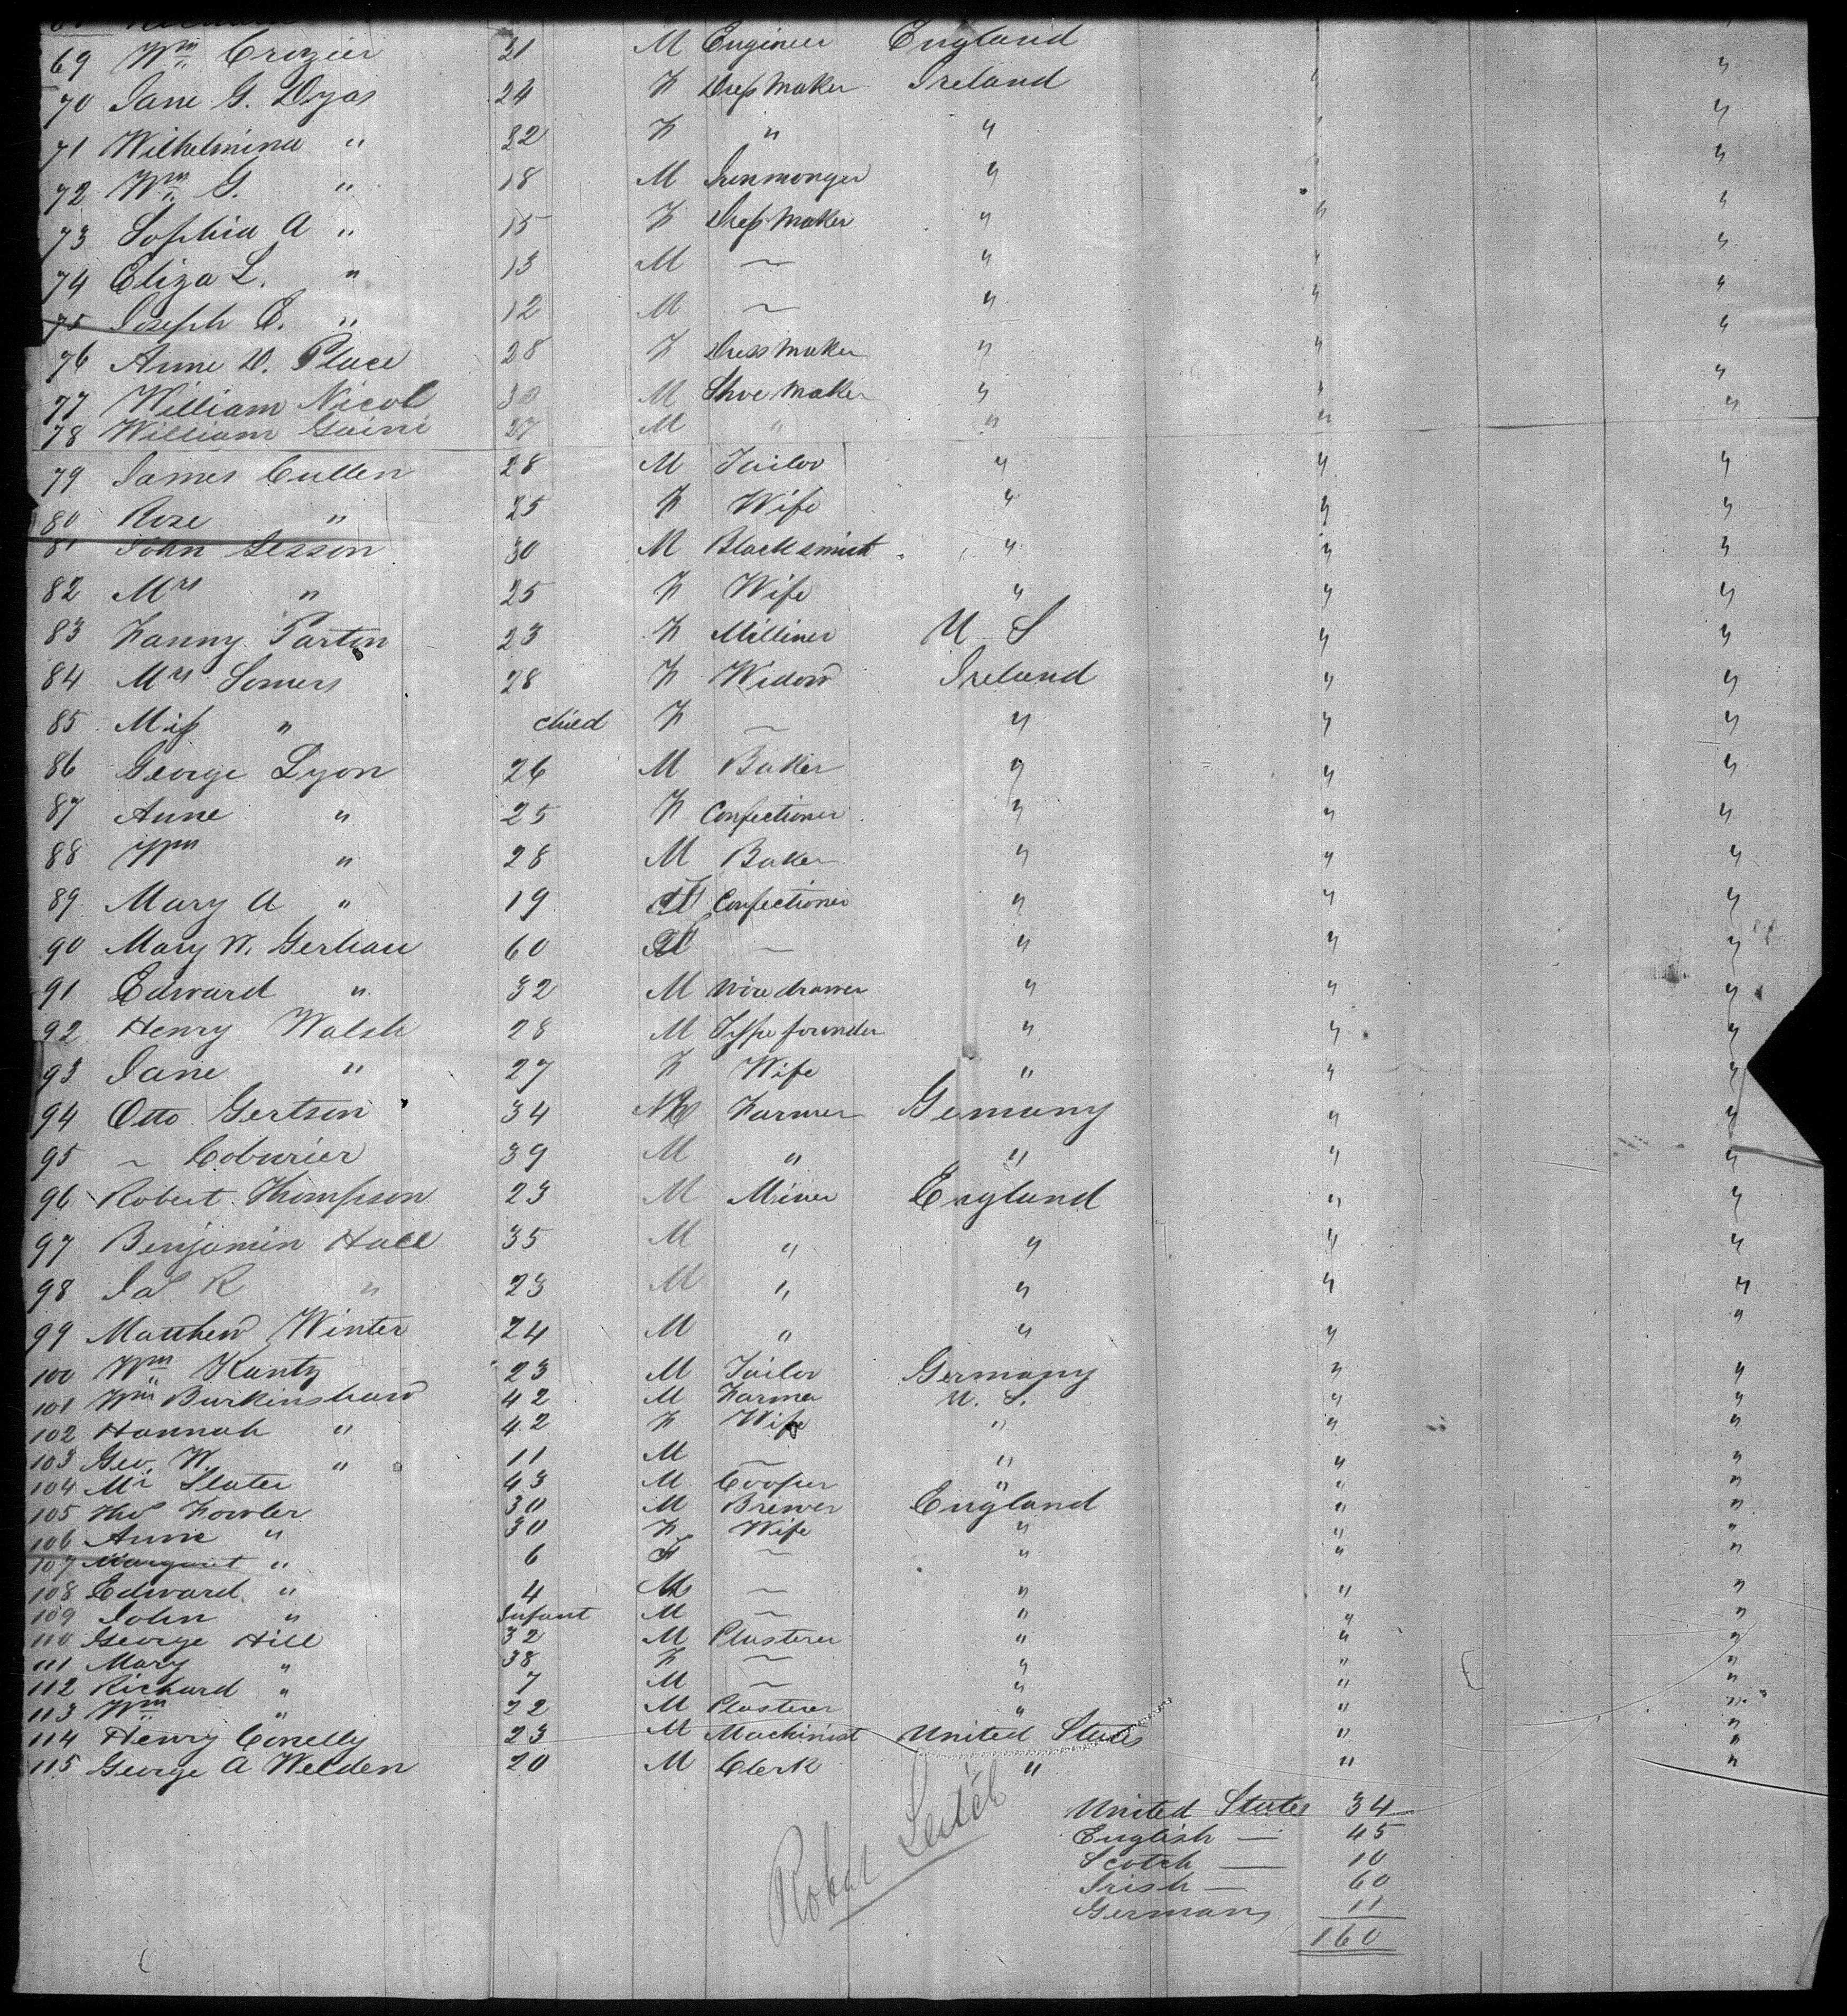 69 Wm Crozier 21 M Engineer England
70 Jane G. Dyas 24 F Dress Maker Ireland " "
71 Wilhelmina " 22 F " " " "
72 Wm G. " 18 M Ironmonger " "
73 Sophia A " 15 F Dress Maker " " "
74 Eliza L. " 13 M ~ " " "
75 Joseph E. " 12 M ~ " " "
76 Anne D. Place 28 F Dress Maker " " "
77 William Nicol 30 M Shoe Maker " " "
78 William 27 M " " " "
79 James Cullen 28 M Tailor " " "
80 Rose " 25 F Wife " " "
81 John Sesson 30 M Blacksmith " " "
82 Mrs " 25 F Wife " " "
83 Fanny Parton 23 F Milliner U S " "
84 Mrs Somers 28 F Widow Ireland " "
85 Miss " child F ~ " " "
86 George Lyon 26 M Baker " " "
87 Anne " 25 F Confectioner " " "
88 Wm " 28 M Baker " " "
89 Mary A " 19 F Confectioner " " "
90 Mary W. 60 F ~ " " "
91 Edward " 32 M Wire drawer " " "
92 Henry Walsh 28 M Type founder " " "
93 Jane " 27 F Wife " " "
94 Otto Gertson 34 M Farmer Gemany " "
95 ~ Coburier 39 M " " " "
96 Robert Thompson 23 M Miner England " "
97 Benjamin Hall 35 M " " " "
98 Jas R " 23 M " " " "
99 Matthew Winter 24 M " " " "
100 Wm Kantz 23 M Tailor Germany " "
101 Wm Burkinshaw 42 M Farmer U. S. " "
102 Hannah " 42 F Wife " " "
103 Geo. W. " 11 M ~ " " "
104 Mr Slater 43 M Cooper " " "
105 Thos Fowler 30 M Brewer England " "
106 Anne " 30 F Wife " " "
107 Margaret " 6 F ~ " " "
108 Edward " 4 M ~ " " "
109 John " Infant M ~ " " "
110 George Hill 32 M Plasterer " " "
111 Mary " 38 F ~ " " "
112 Richard " 7 M ~ " " "
113 Wm " 22 M Plasterer " " "
114 Henry Conelly 23 M Machinist United States " "
115 George A Welden 20 M Clerk " " "
Robert Leitch
United States 34
English — 45
Scotch — 10
Irish — 60
Germans 11
160